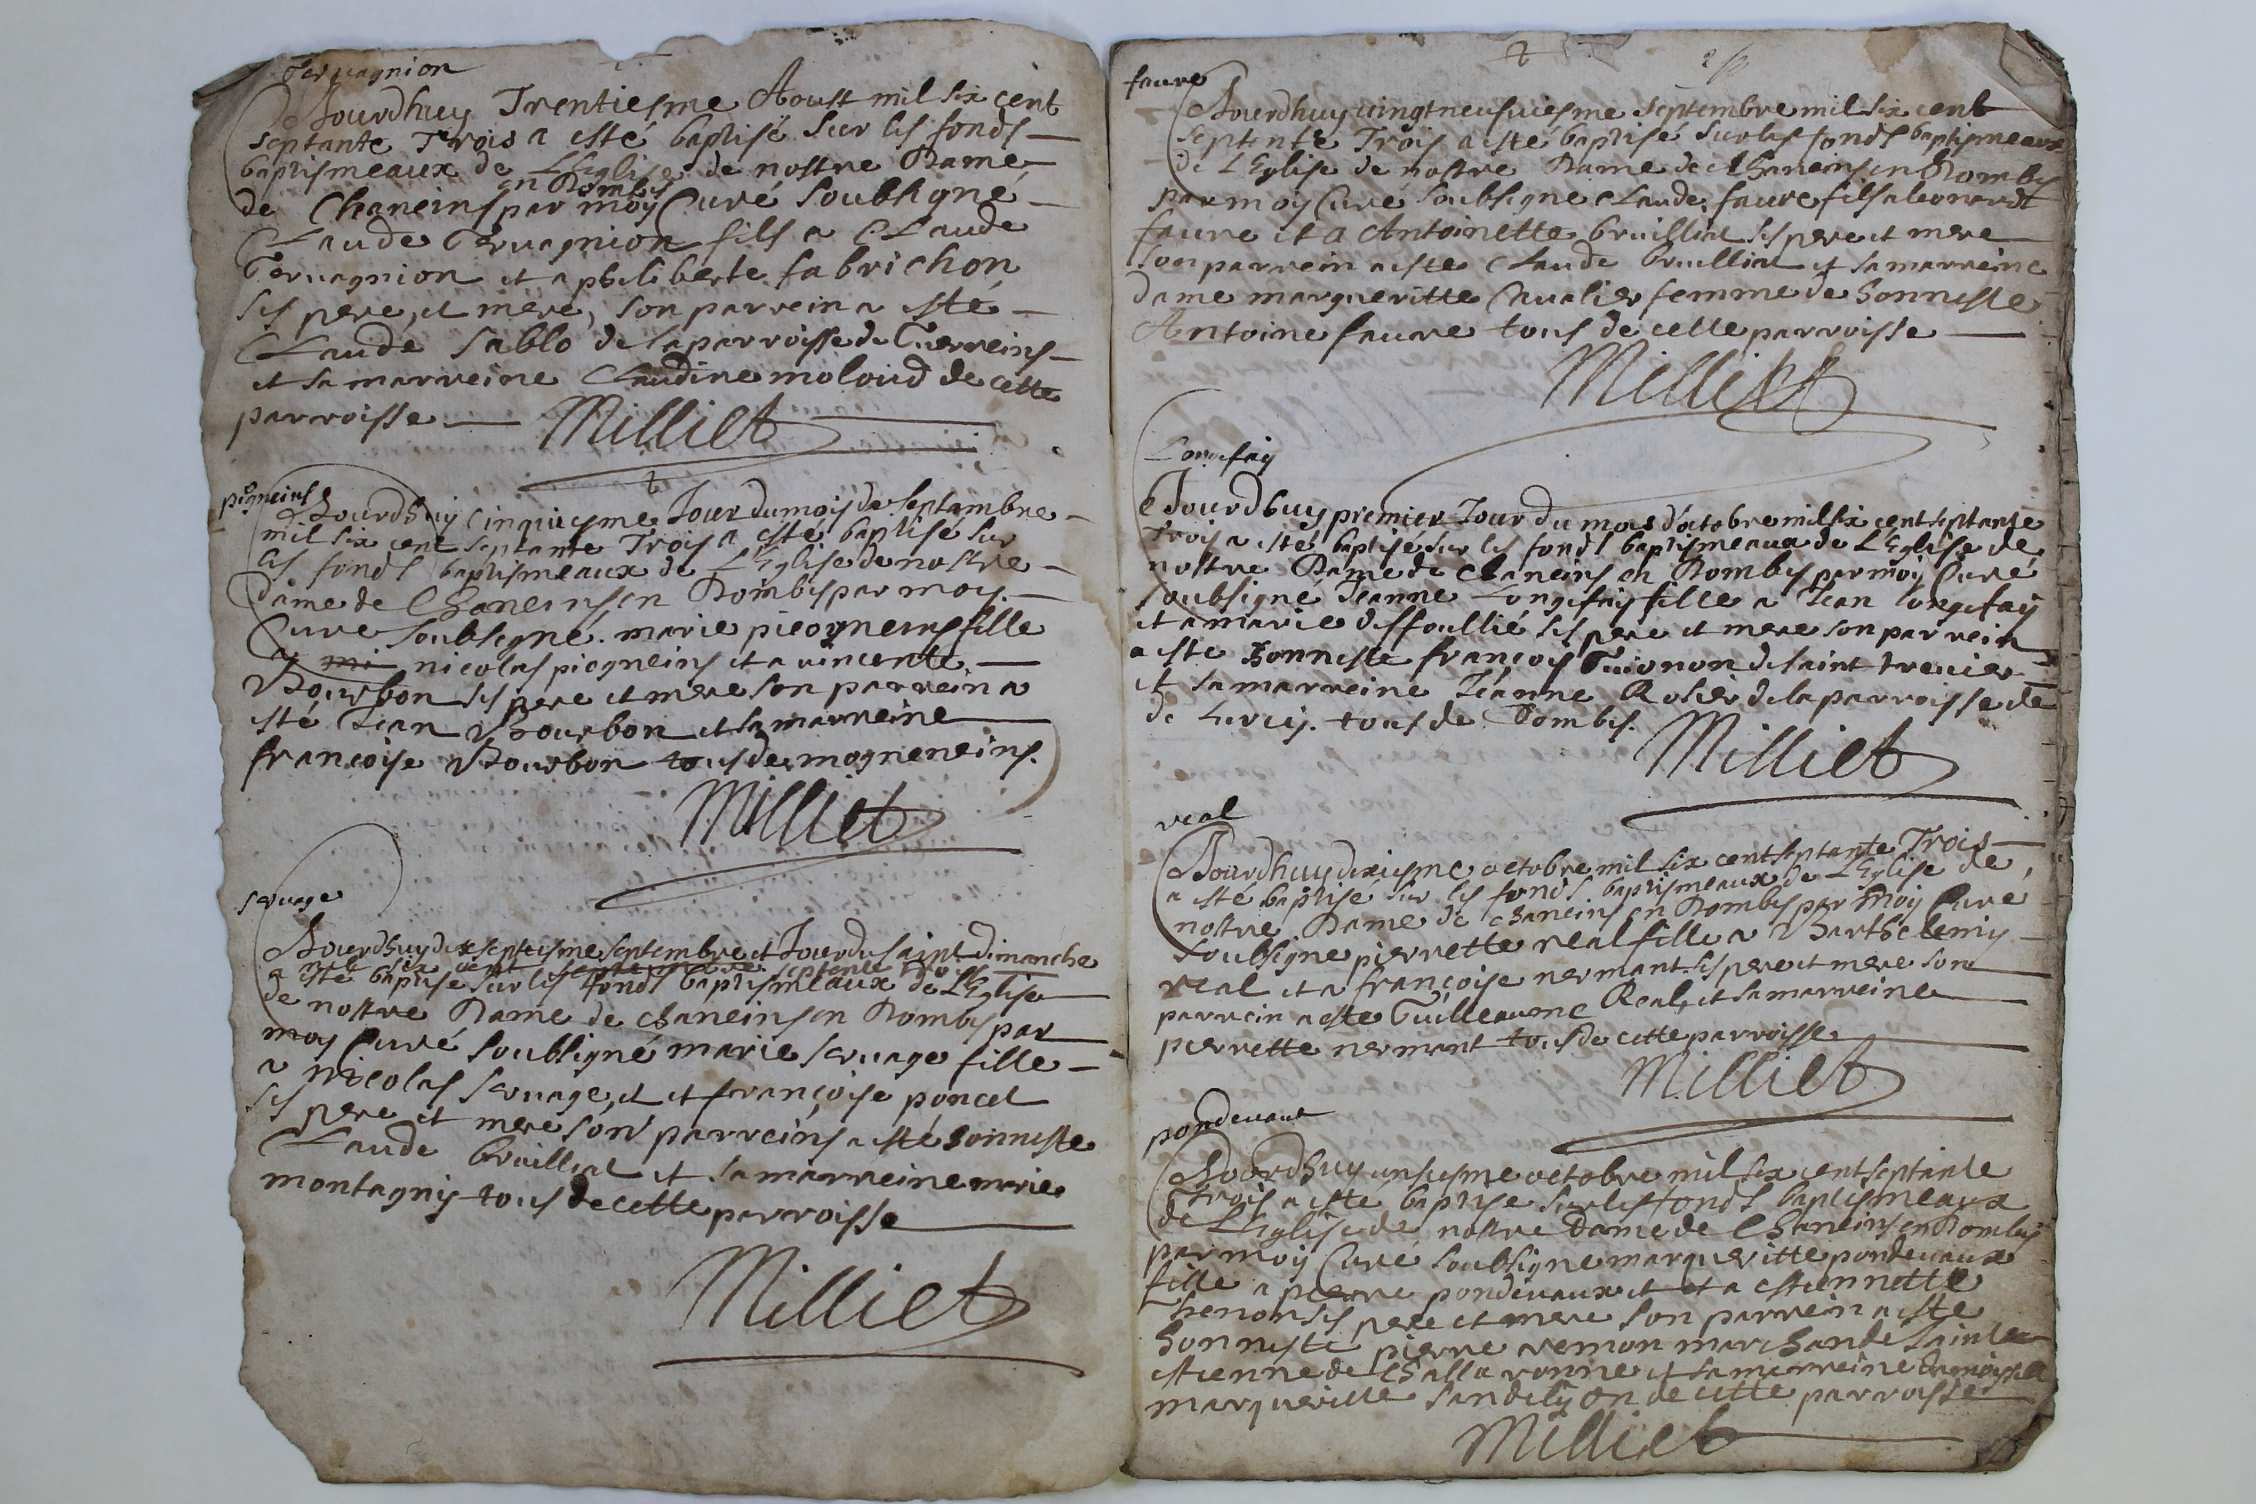 Tervagnion
Aourdhuy Trentiesme Aoust mil six cent
septante Trois a esté baptisé sur les fonds
baptismeaux de L'Eglise de nostre Dame
en Dombes
de Chaneins par moy Curé soubsigné
Claude Tervagnion fils a Claude
Tervagnion et a philiberte fabrichon
ses pere, et mere, son parrein a esté
Claude sablo de la parroisse de Guerreins
et sa marreine Claudine moloud de cette
parroisse Milliet
piogneins
Aourdhuy cinquiesme Jour du mois de septembre
mil six cent septante Trois a esté baptisé sur
les fonds baptismeaux de L'Eglise de nostre
dame de Chaneins en Dombes par moy
Curé soubsigné marie piogneins fille
a nicolas piogneins et a vincente
Bourbon ses pere et mere son parrein a
esté Jean Bourbon et sa marreine
francoise Bourbon tous de mogneneins.
Milliet
servage
Aourdhuy dix septiesme septembre et Jour du saint dimanche
mil six cent septante trois
a esté baptise sur les fonds baptismeaux de L'Eglise
de nostre Dame de chaneins en Dombes par
moy Curé soubsigné marie servage fille
a nicolas servage, et et françoise poncet
ses pere et mere son parreins a esté honneste
Claude bruilliat et sa marreine marie
montagny tous de cette parroisse
Milliet
faure
Aourdhuy vingt neufviesme septembre mil six cent
septente Trois a esté baptisé sur les fonds baptismeaux
de L'Eglise de nostre Dame de Chaneins en Dombes
par moy Curé soubsigne Claude faure fils a leonardt
faure et a Antoinette bruilliat ses pere et mere
son parrein a este Claude bruilliat et sa marreine
dame margueritte Cavalier femme de honneste
Antoine faure tous de cette parroisse
Milliet
Longefay
Aourdhuy premier Jour du mois d'octobre mil six cent septante
trois a esté baptisé sur les fonds baptismeaux de L'Eglise de
nostre Dame de chaneins en Dombes par moy Curé
soubsigne Jeanne Longefay fille a Jean longefay
et a marie desfoullié ses pere et mere son parrein
a este honneste françois Guionon de saint trevier
et sa marreine Jeanne Rosier de la parroisse de
de Lurcy. tous de Dombes.
Milliet
real
Aourdhuy dixiesme octobre mil six cent septante Trois
a esté baptisé sur les fonds baptismeaux de L'Eglise de
nostre Dame de chaneins en Dombes par Moy Curé
soubsigne pierrette real fille a Barthelemy
real et a françoise nermant ses pere et mere son
parrein a este Guilleaume Real, et sa marreine
pierrette nermant tous de cette parroisse
Milliet
pondevaux
Aourdhuy unsiesme octobre mil six cent septante
Trois a este baptise sur les fonds baptismeaux
de L'Eglise de nostre Dame de Chaneins en Dombes
par moy Curé soubsigne margueritte pondevaux
fille a pierre pondevaux et et a estiennette
henon ses pere et mere son parrein a este
honneste pierre remon marchand de saint
estienne de Challaronne et sa marreine damoyselle
margueritte sandelyon de cette parroisse
Milliet